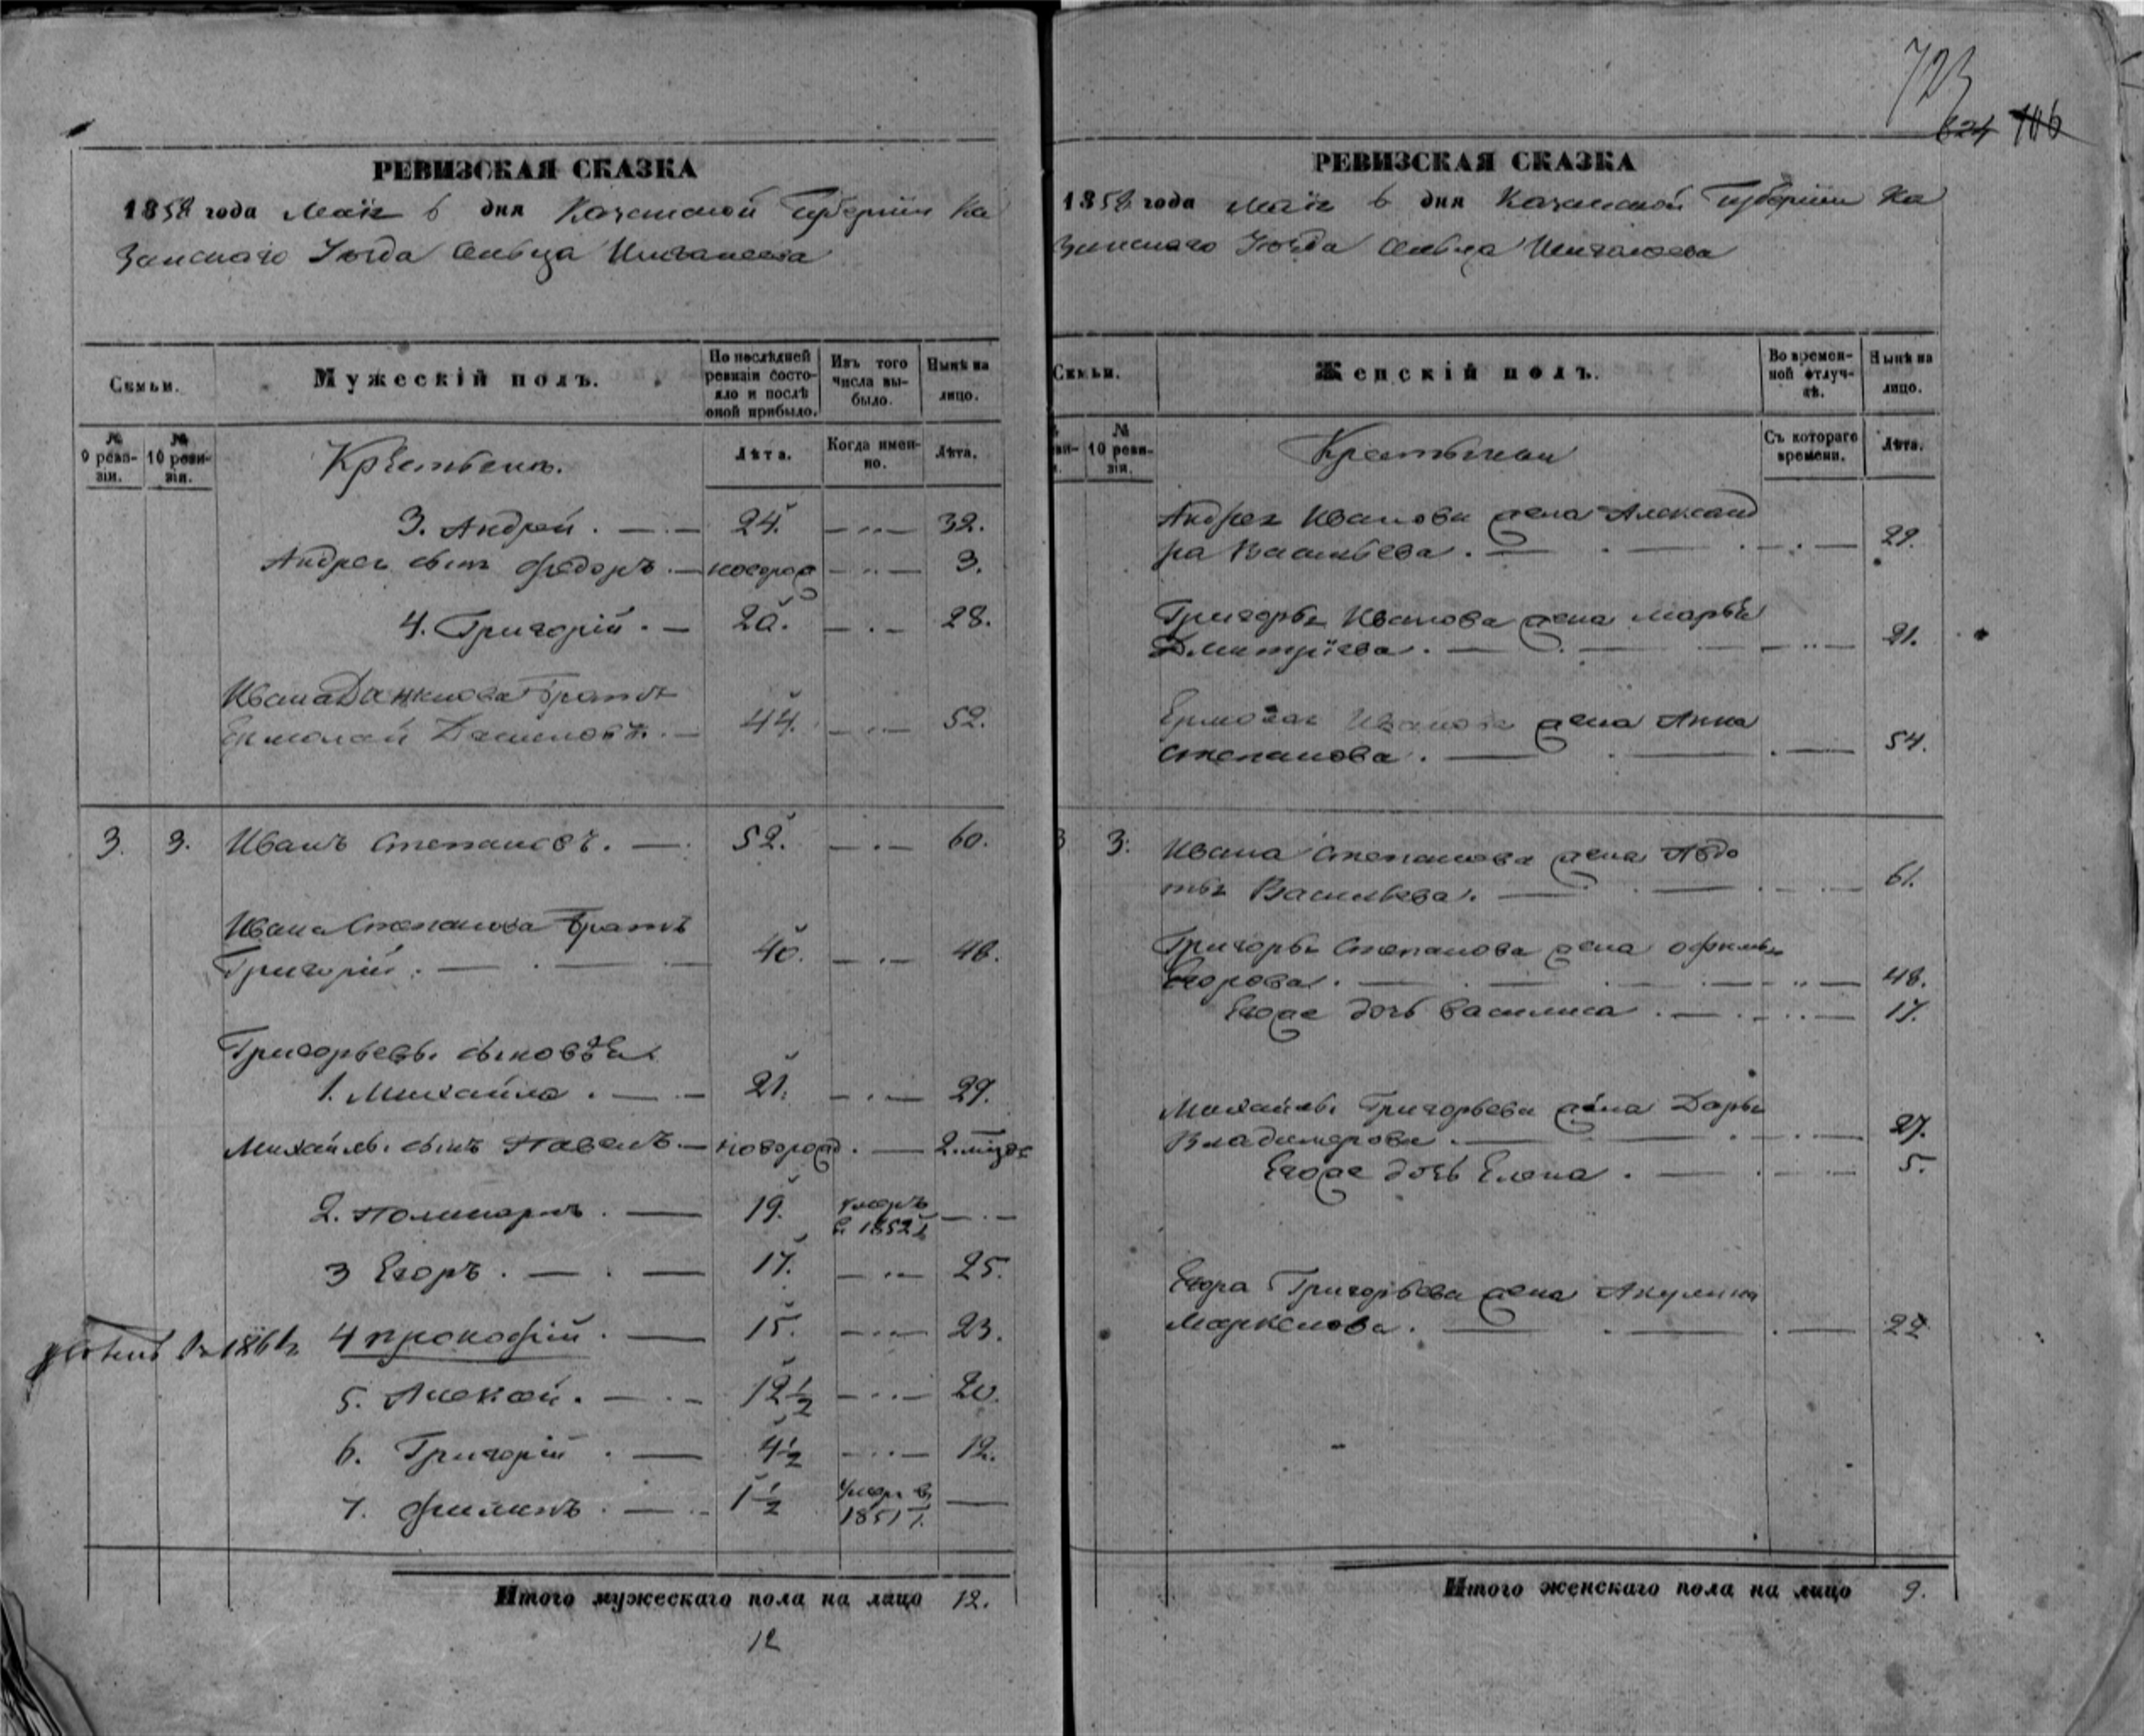 723
624 106
РЕВИЗСКАЯ СКАЗКА
1858 года Маія 6 дня Казанской Губерніи Ка
занскаго Уезда сельца
Семьи.
Мужескій полъ.
По послѣдней ревизіи состояло и послѣ оной прибыло.
Изъ того числа выбыло.
Нынѣ на лицо.
№ 9 ревизіи.
№ 10 ревизіи.
Крестьяне.
Лѣта.
Когда именно.
Лѣта.
3. Андрей. 24. 32.
Андрея сынъ Федоръ новорож 3.
4. Григорій. 20. 28.
Ивана Данилова братъ
Ермолай Даниловъ. 44. 52.
3. 3. Иванъ Степановъ. 52. 60.
Ивана Степанова братъ
Григорій. 40. 48.
Григорьевы сыновья
1. Михайла. 21. 29.
Михайлы сынъ Павелъ новорожд. 2. мѣся
2. Поликарпъ. 19. умеръ
в 1852 г.
3 Егоръ. 17. 25.
1861 4 Прокофій. 15. 23.
5. Алексей. 12½ 20.
6. Григорій. 4½ 12.
7. Филипъ. 1½ умеръ в
1851 г.
Итого мужескаго пола на лицо 12.
12
РЕВИЗСКАЯ СКАЗКА
1858 года Маія 6 дня Казанской Губерніи Ка
занскаго Уезда сельца
Семьи.
Женскій полъ.
Во временной отлучкѣ.
Нынѣ на лицо.
№ 10 ревизіи.
Крестьянки
Съ котораго времени.
Лѣта.
Андрея Иванова жена Александ
ра Васильева. 29.
Григорья Иванова жена Марья
Дмитріева. 21.
Ермолая Иванова жена Анна
Степанова. 54.
3 3. Ивана Степанова жена Авдо
тья Васильева. 61.
Григорья Степанова жена Офимья
Егорова. 48.
Егоже дочь Василиса. 17.
Михайлы Григорьева жена Дарья
Владимерова. 27.
Егоже дочь Елена. 5.
Егора Григорьева жена Акулина
Маркелова. 22
Итого женскаго пола на лицо 9.